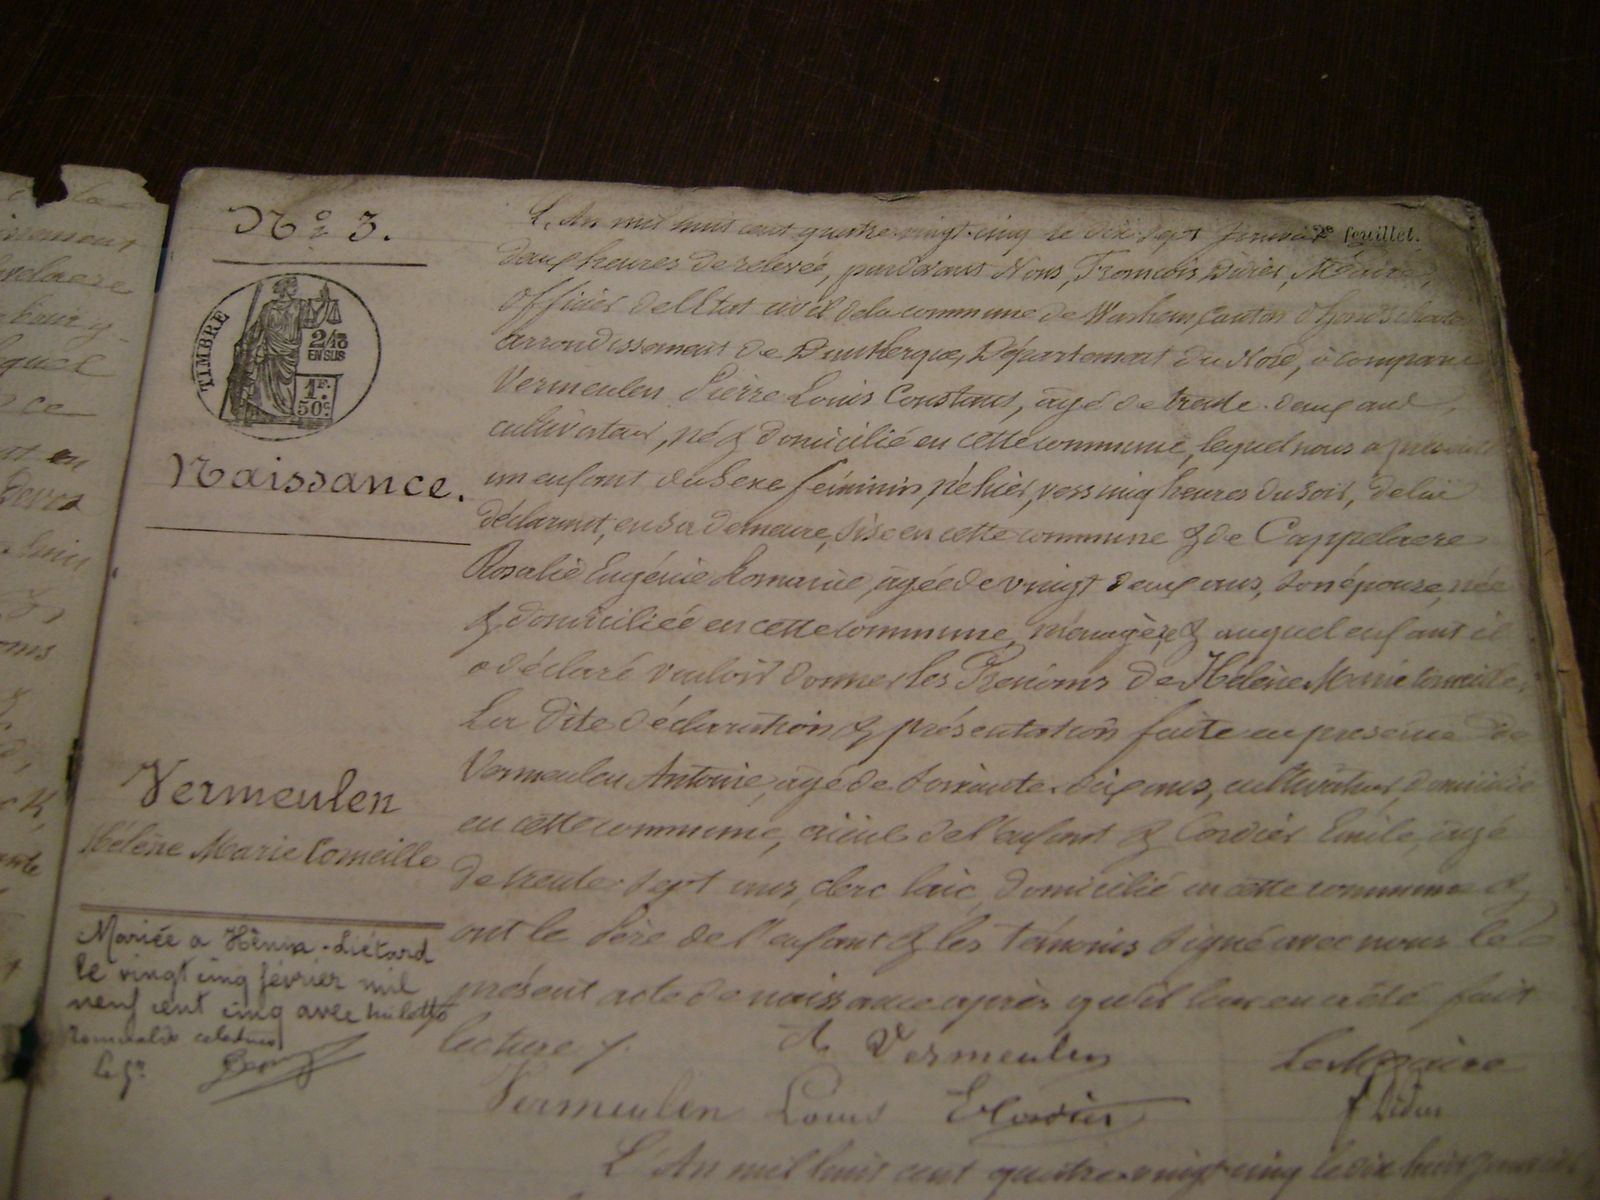 No 3.
TIMBRE
2/10
EN SUS
1F.
50c.
Naissance.
Vermeulen
Hélène Marie Corneille
Mariée a Hénin-Liétard
le vingt cinq février mil
neuf cent cinq avec
2e feuillet.
L'An mil huit cent quatre-vingt-cinq le dix-sept Janvier
deux heures de relevée, pardevant Nous, François Didier, Maire,
Officier de l'Etat civil de la commune de Warhem Canton d'Hondschoote
arrondissement de Dunkerque, Département du Nord, a comparu
Vermeulen Pierre Louis Constant, âgé de trente-deux ans,
cultivateur, né & domicilié en cette commune, lequel nous a présenté
un enfant du Sexe féminin, né hier, vers cinq heures du soir, de lui
déclarant, en sa demeure, sise en cette commune & de Cappelaere
Rosalie Eugénie Romanie, âgée de vingt deux ans, son épouse, née
& domiciliée en cette commune, ménagère & auquel enfant il
a déclaré vouloir donner les Prénoms de Hélène Marie Corneille.
La dite déclaration & présentation faite en présence de
Vermeulen Antoine, âgé de soixante-dix ans, cultivateur, domicilié
en cette commune, aïeul de l'enfant & Cordier Emile, âgé
de trente-sept ans, clerc laïc, domicilié en cette commune &
ont le Père de l'enfant & les témoins signé avec nous le
présent acte de naissance après qu'il leur en a été fait
lecture /.
A Vermeulen
Le Maire
Vermeulen Louis
E Cordier
f Didier
L'An mil huit cent quatre-vingt-cinq le dix huit Janvier